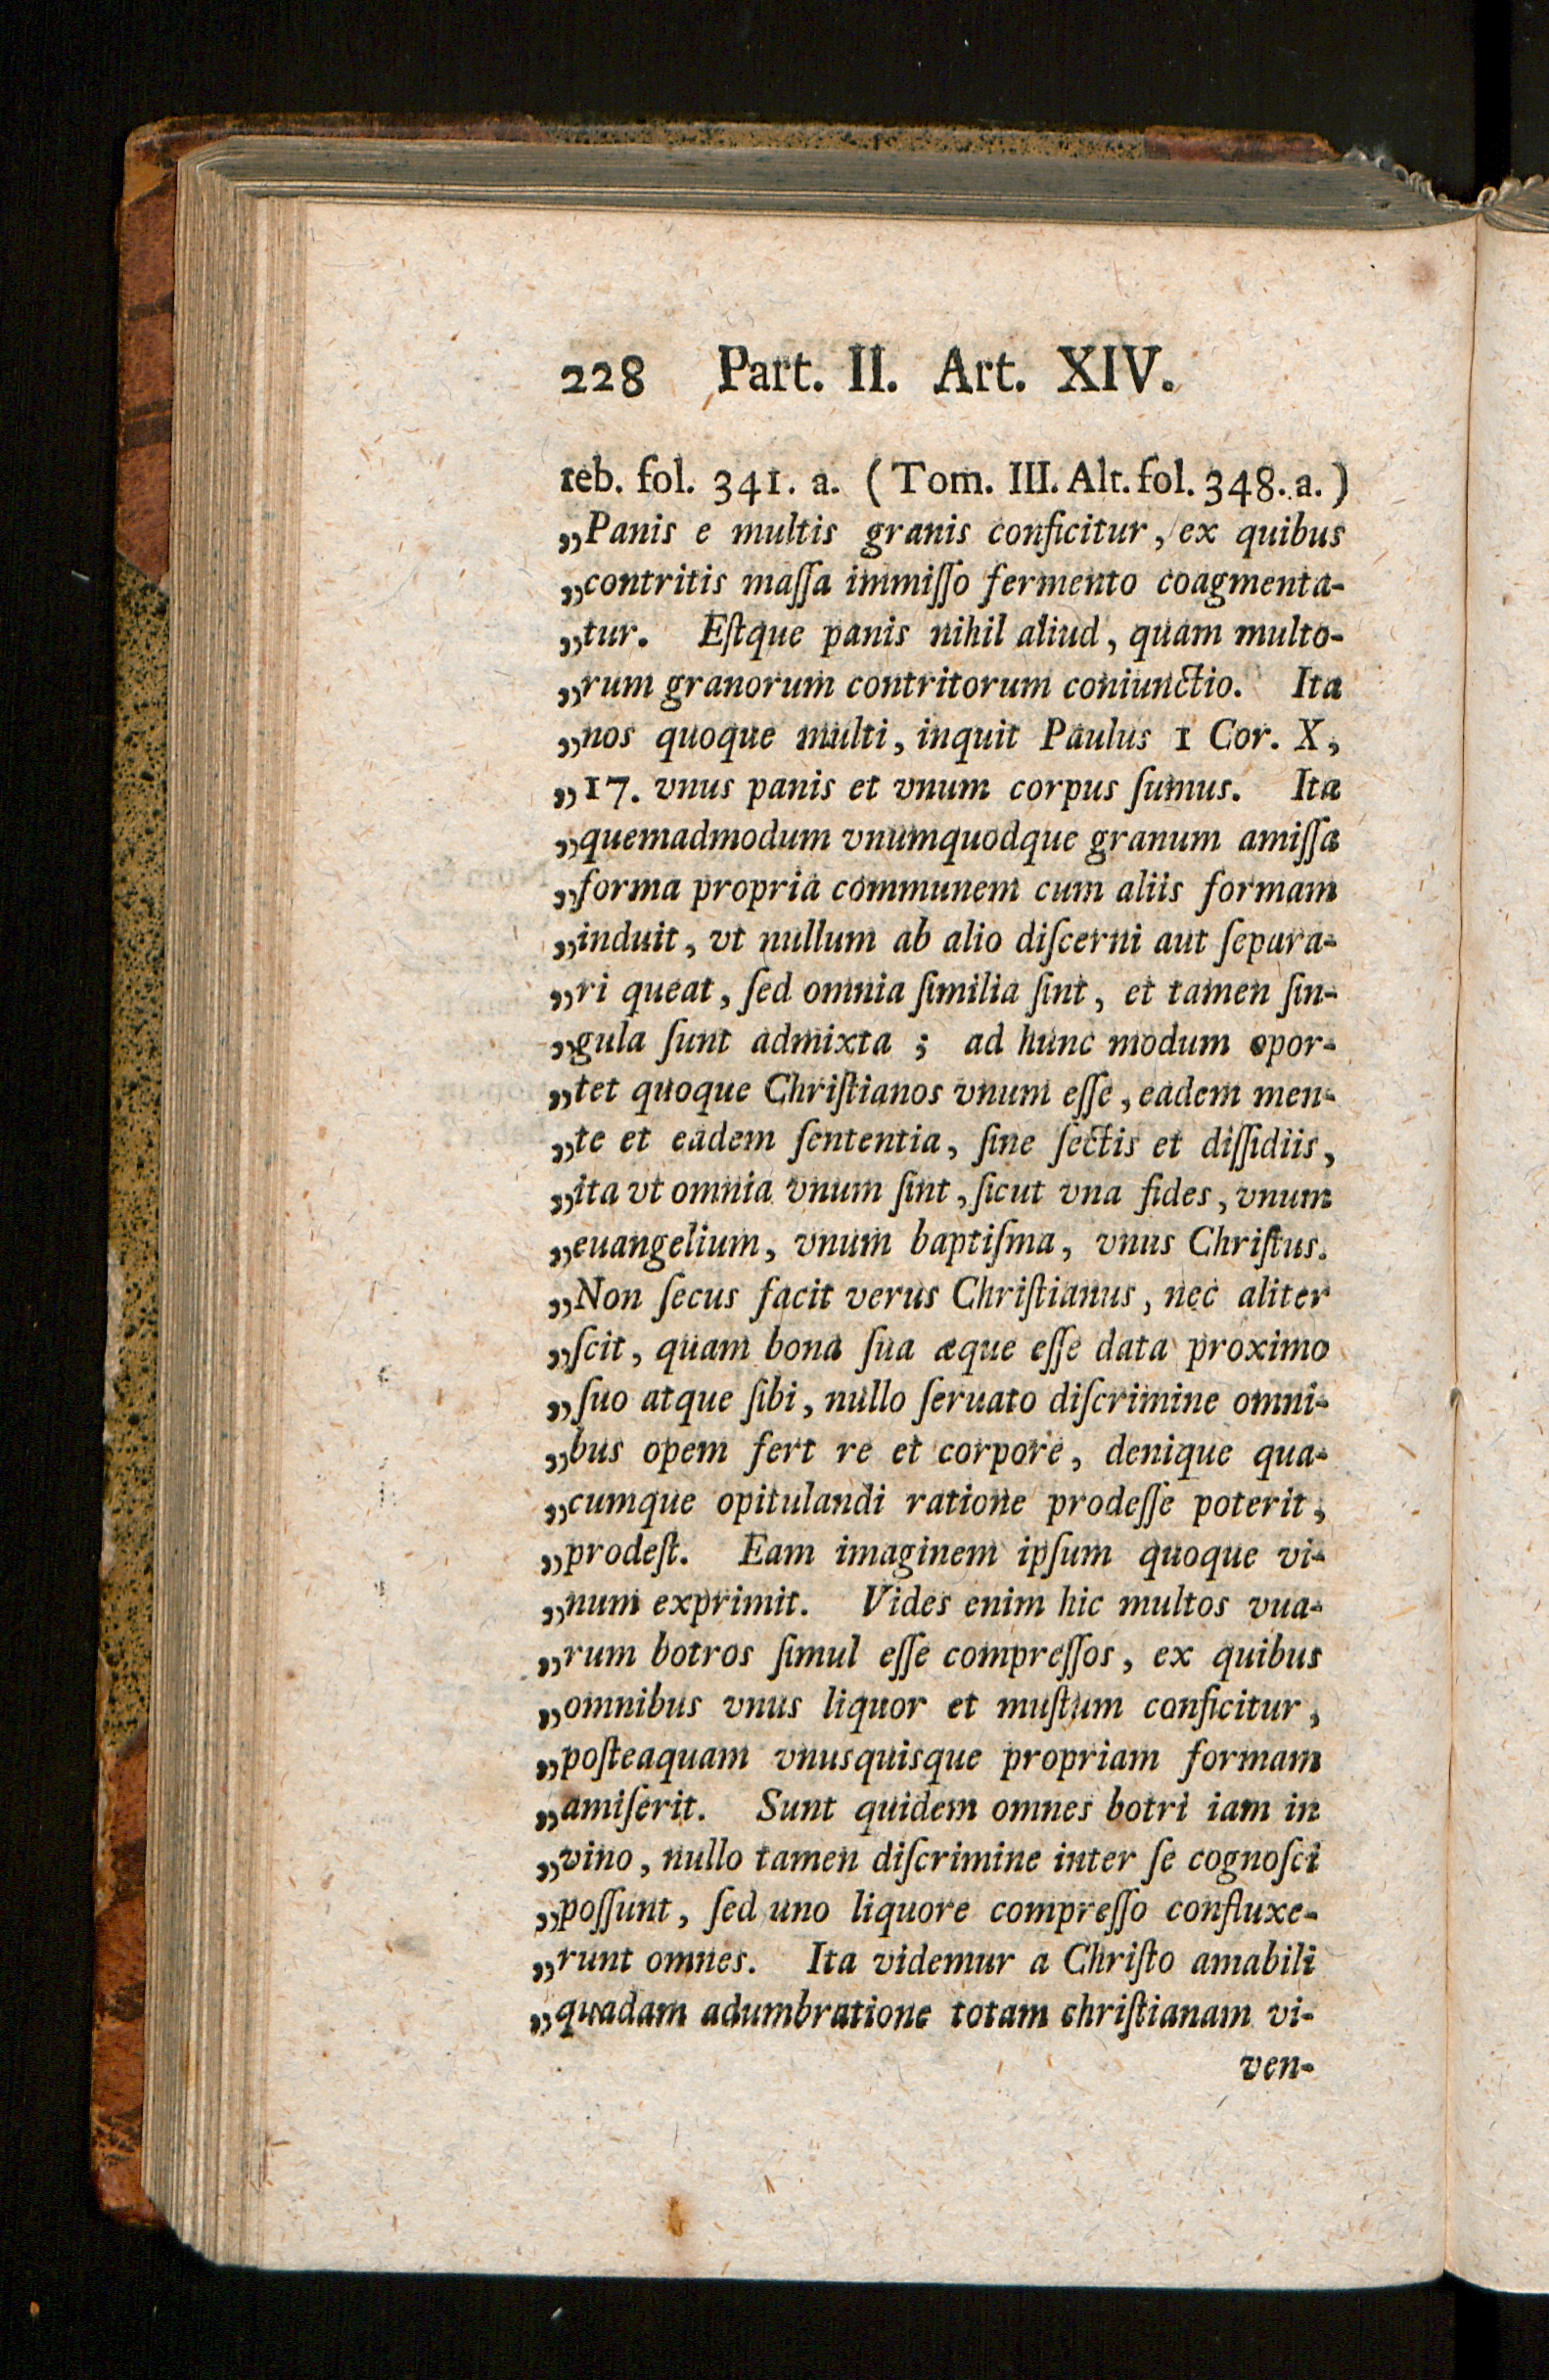 228 Part. II. Art. XIV.
teb. fol. 341. a. (Tom. III. Alt. fol. 348. a.)
„Panis e multis granis conficitur, ex quibus
„contritis maſſa immiſſo fermento coagmenta-
„tur. Eſtque panis nihil aliud, quam multo-
„rum granorum contritorum coniunctio. Ita
„nos quoque multi, inquit Paulus 1 Cor. X,
„17. vnus panis et vnum corpus ſumus. Ita
„quemadmodum vnumquodque granum amiſſa
„forma propria communem cum aliis formam
„induit, vt nullum ab alio diſcerni aut ſepara-
„ri queat, ſed omnia ſimilia ſint, et tamen ſin-
„gula ſunt admixta; ad hunc modum opor-
„tet quoque Chriſtianos vnum eſſe, eadem men-
„te et eadem ſententia, ſine ſectis et diſſidiis,
„ita vt omnia vnum ſint, ſicut vna fides, vnum
„euangelium, vnum baptiſma, vnus Chriſtus.
„Non ſecus facit verus Chriſtianus, nec aliter
„ſcit, quam bona ſua æque eſſe data proximo
„ſuo atque ſibi, nullo ſeruato diſcrimine omni-
„bus opem fert re et corpore, denique qua-
„cumque opitulandi ratione prodeſſe poterit,
„prodeſt. Eam imaginem ipſum quoque vi-
„num exprimit. Vides enim hic multos vua-
„rum botros ſimul eſſe compreſſos, ex quibus
„omnibus vnus liquor et muſtum conficitur,
„poſteaquam vnusquisque propriam formam
„amiſerit. Sunt quidem omnes botri iam in
„vino, nullo tamen diſcrimine inter ſe cognoſci
„poſſunt, ſed uno liquore compreſſo confluxe-
„runt omnes. Ita videmur a Chriſto amabili
„quadam adumbratione totam chriſtianam vi-
ven-